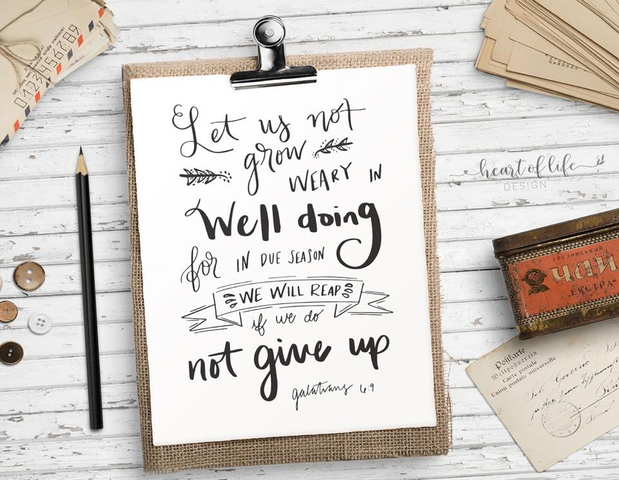 Let us not
grow
WEARY IN
Well doing
for IN DUE SEASON
WE WILL REAP
if we do
not give up
galatians 6:9
heart of life
DESIGN
ЧАЙ
„ЕКСТРА"
Postkarte
Weltpostverein
Carte postale
Union postale universelle